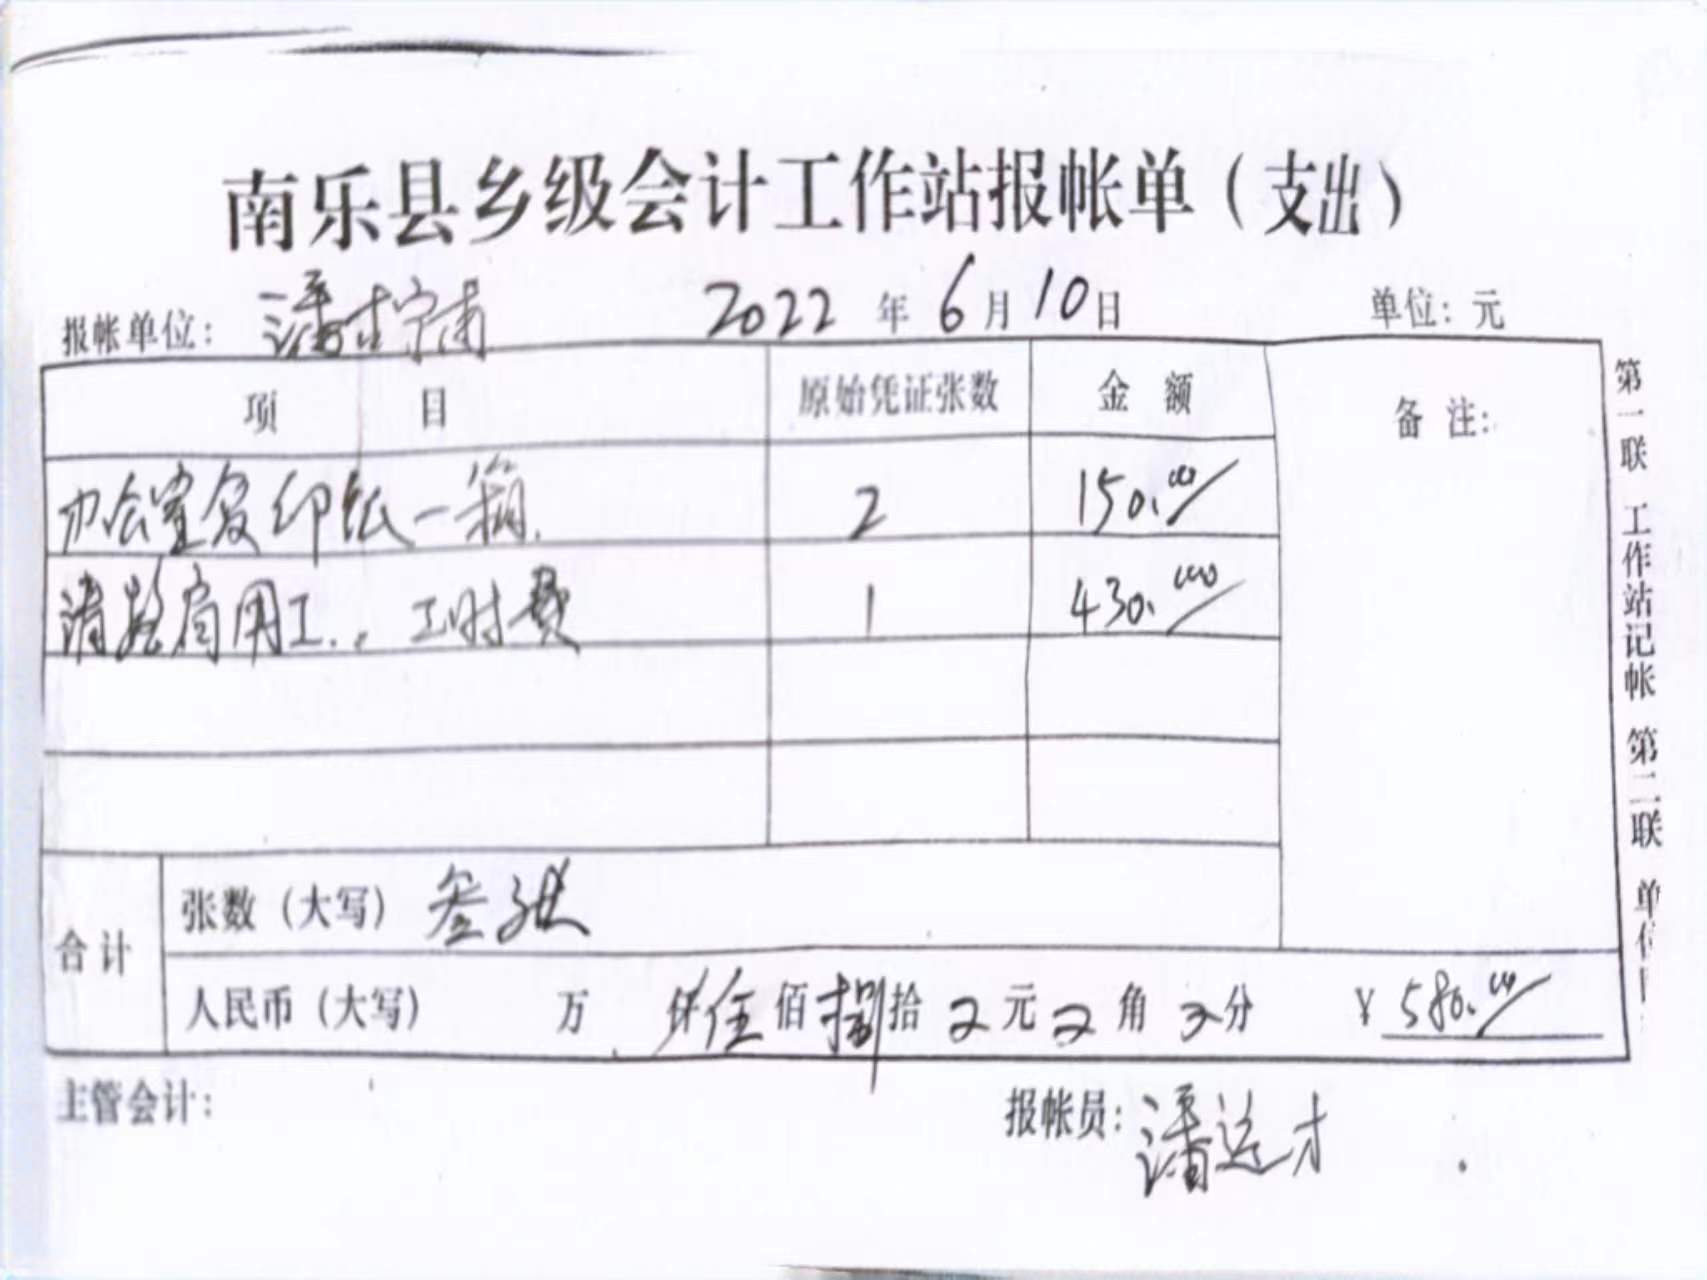 南乐县乡级会计工作站报帐单（支出）
报帐单位： 2022 年 6 月 10 日 单位：元
项 目 原始凭证张数 金 额 备 注：
办公室复印纸一箱. 2 150.00
清 用工.. 工时费 1 430.00
合计 张数（大写） 叁张
人民币（大写） 万 仟 伍 佰 捌 拾 元 角 分 ￥ 580.00
主管会计： 报帐员：潘运才
第一联 工作站记帐 第二联 单位